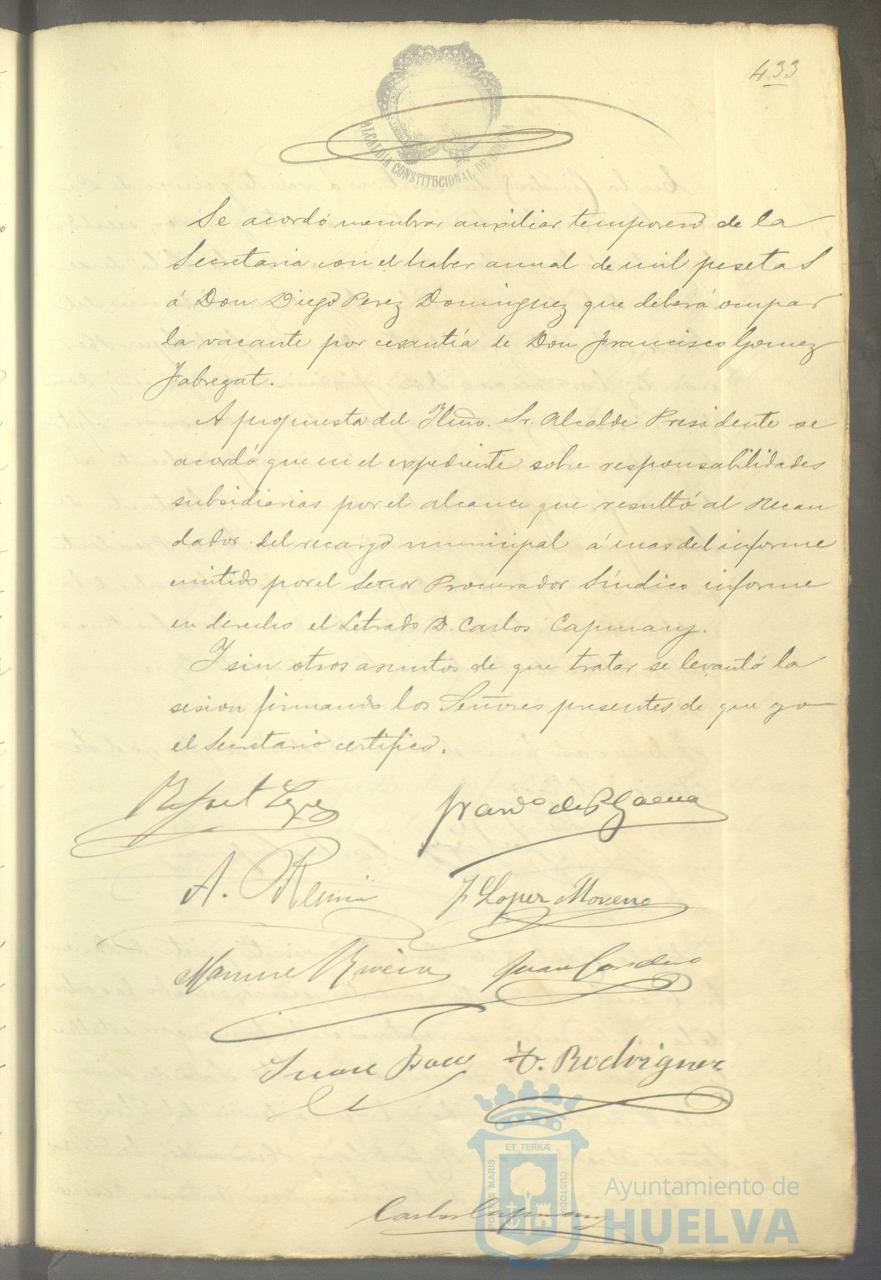 433
ALCALDIA CONSTITUCIONAL DE HUELVA
Se acordó nombrar auxiliar temporero de la
Secretaria con el haber anual de mil pesetas
á Don Diego Perez Dominguez que deberá ocupar
la vacante por cesantía de Don Francisco Gomez
Fabregat.
A propuesta del Iltmo. Sr. Alcalde Presidente se
acordó que en el expediente sobre responsabilidades
subsidiarias por el alcance que resultó al Recau
dador del recargo municipal á mas del informe
emitido por el Señor Procurador Síndico informe
en derecho el Letrado D. Carlos Capmany.
Y sin otros asuntos de que tratar se levantó la
sesion firmando los Señores presentes de que yo
el Secretario certifico.
Rafael Lopez
Franco de P
A.
J Lopez Moreno
Manuel Rivera
Juan Cordero
Juan
D. Rodriguez
Carlos Capmany
ET TERRÆ
PORTUS MARIS
CUSTODIA
Ayuntamiento de
HUELVA